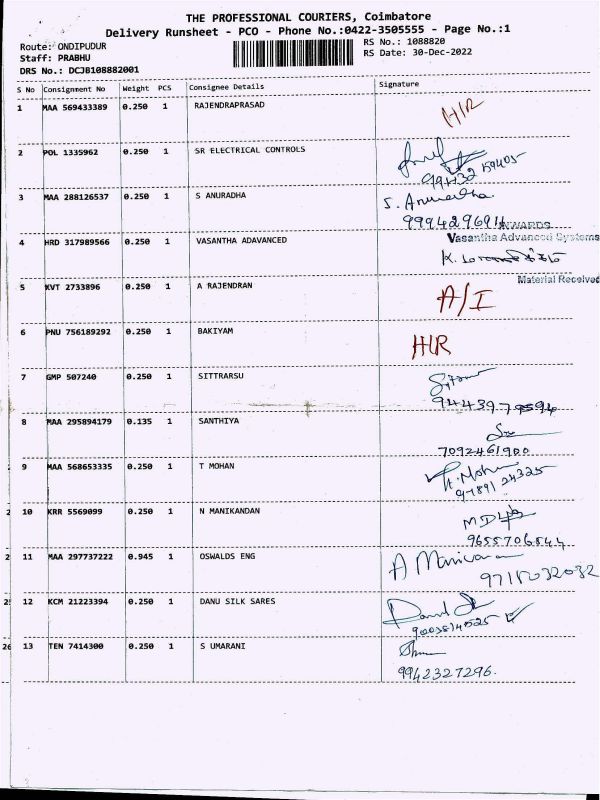 THE PROFESSIONAL COURIERS, Coimbatore
Delivery Runsheet - PCO - Phone No.:0422-3505555 - Page No.:1
Route: ONDIPUDUR
RS No.: 1088820
Staff: PRABHU
RS Date: 30-Dec-2022
DRS No.: DCJB108882001
S No Consignment No Weight PCS Consignee Details Signature
1 MAA 569433389 0.250 1 RAJENDRAPRASAD H/R
2 POL 1335962 0.250 1 SR ELECTRICAL CONTROLS
3 MAA 288126537 0.250 1 S ANURADHA S. Anuradha
9994296914
4 HRD 317989566 0.250 1 VASANTHA ADAVANCED Vasantha Advanced Systems
Material Received
5 KVT 2733896 0.250 1 A RAJENDRAN A/I
6 PNU 756189292 0.250 1 BAKIYAM H/R
7 GMP 507240 0.250 1 SITTRARSU
9443979594
8 MAA 295894179 0.135 1 SANTHIYA
7092461900
9 MAA 568653335 0.250 1 T MOHAN T. Mohan
97891 24325
2 10 KRR 5569099 0.250 1 N MANIKANDAN
9655706544
2 11 MAA 297737222 0.945 1 OSWALDS ENG
9715032032
25 12 KCM 21223394 0.250 1 DANU SILK SARES
26 13 TEN 7414300 0.250 1 S UMARANI
9942327296.